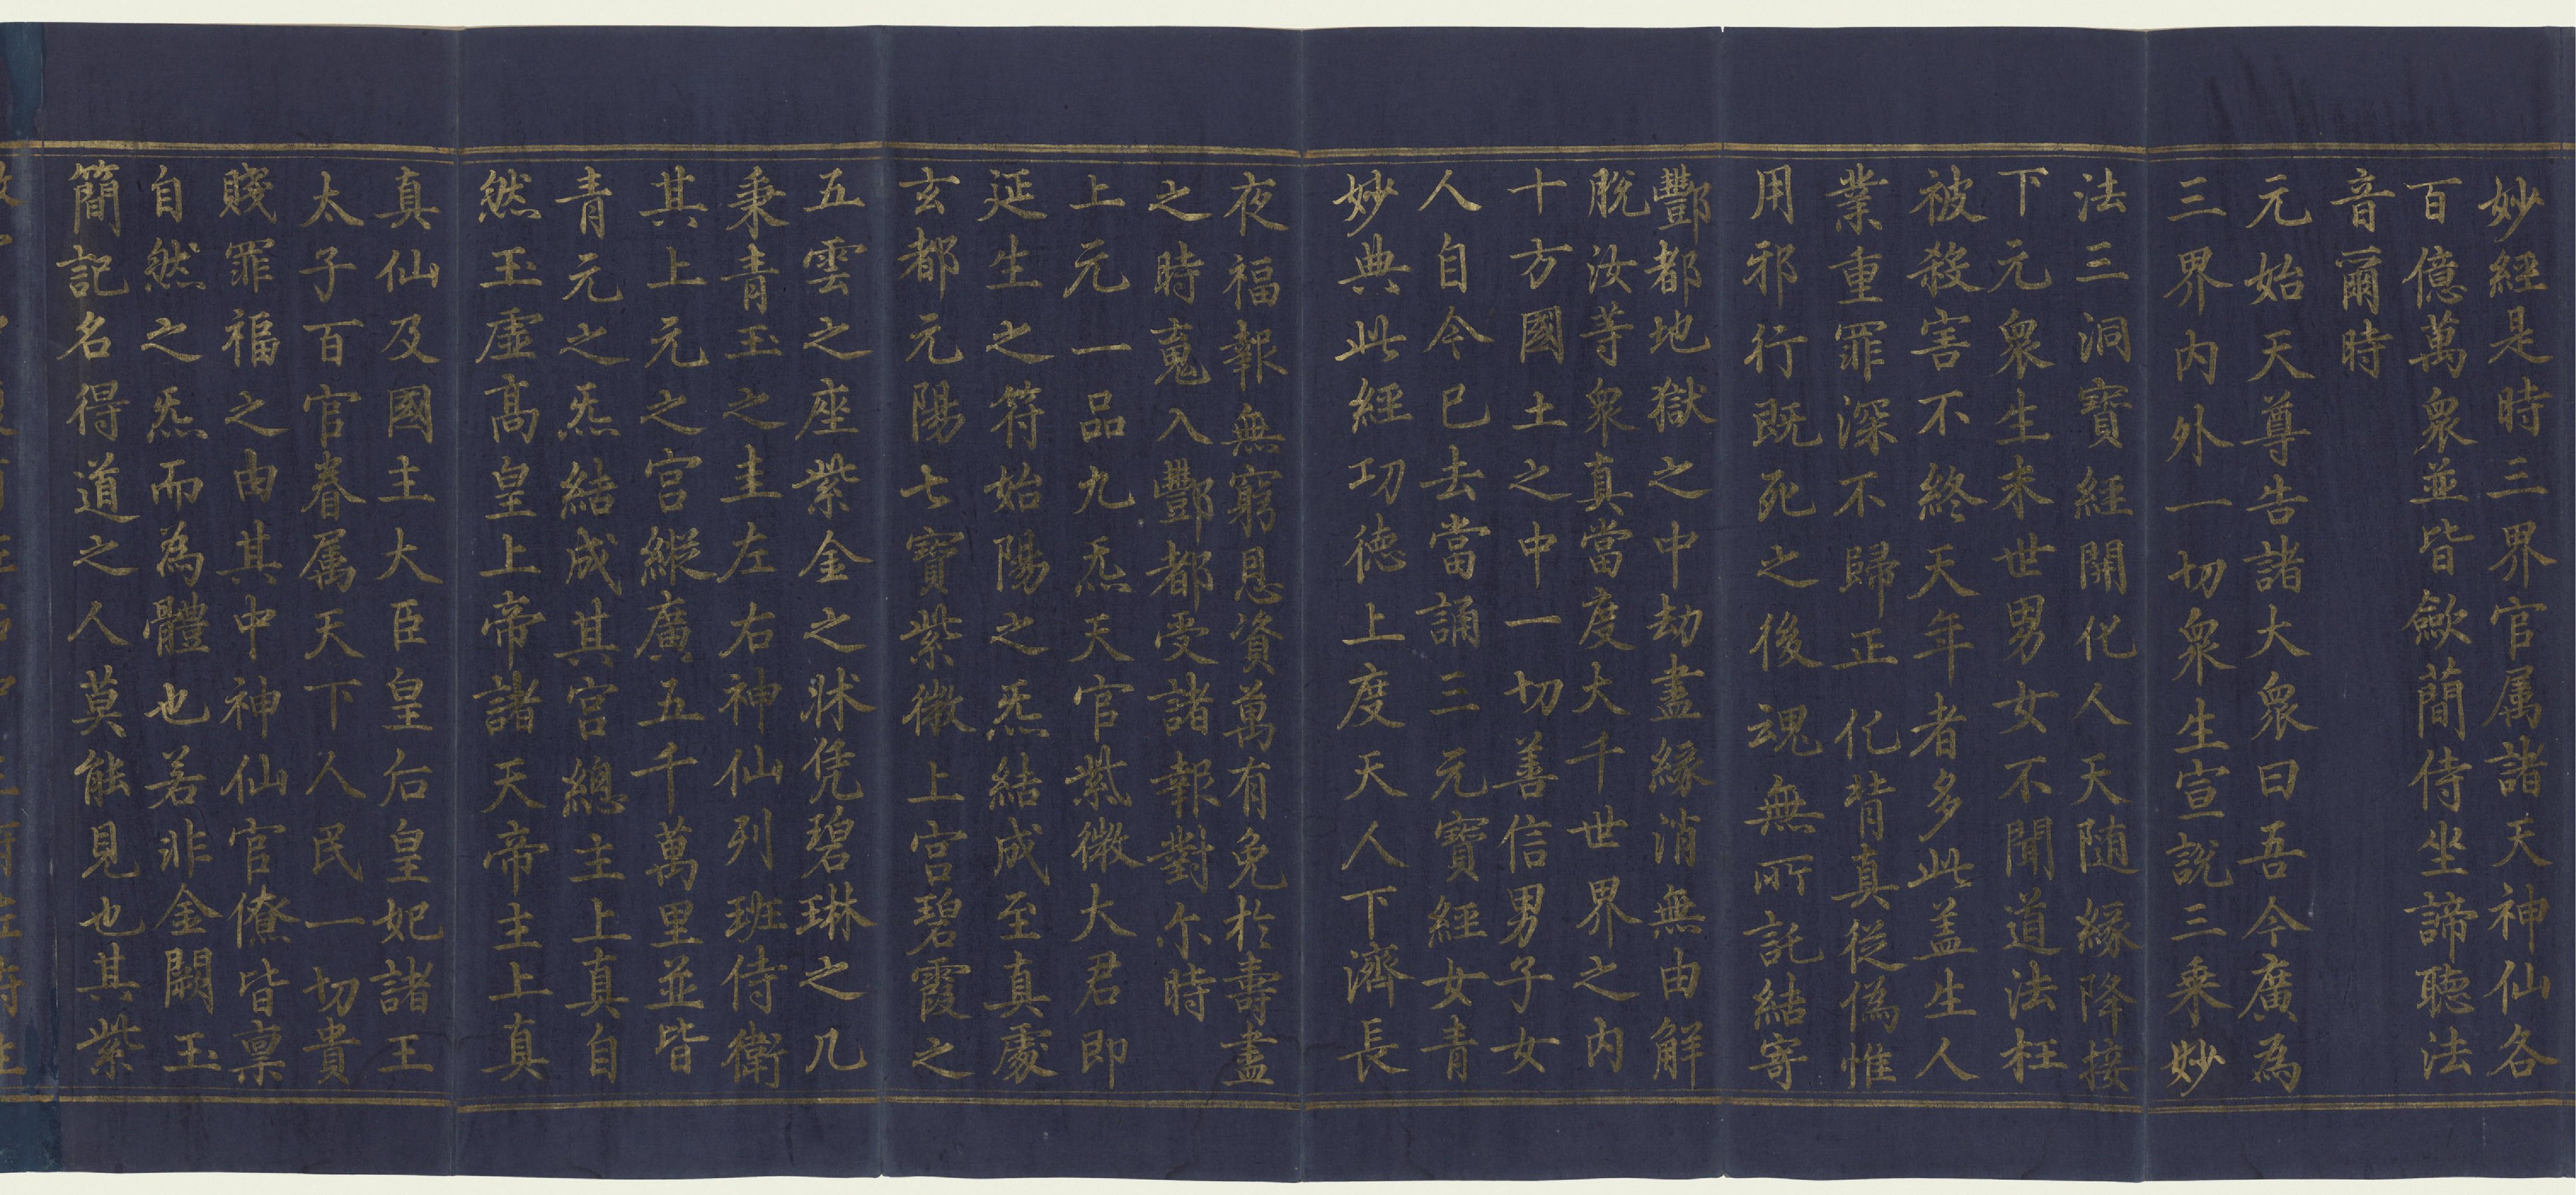 妙經是時三界官属諸天神仙各
百億萬衆並皆歛蕳侍坐諦聽法
音爾時
元始天尊告諸大衆曰吾今廣為
三界内外一切衆生宣說三乘妙
法三洞寶經開化人天随緣降接
下元衆生末世男女不聞道法枉
被殺害不終天年者多此盖生人
業重罪深不歸正化背真從偽惟
用邪行既死之後魂無所託結寄
酆都地獄之中劫盡緣消無由解
脫汝等衆真當度大千世界之内
十方國土之中一切善信男子女
人自今已去當誦三元寶經女青
妙典此經功徳上度天人下濟長
夜福報無窮恩資萬有免於壽盡
之時䰟入酆都受諸報對尒時
上元一品九炁天官紫微大君即
延生之符始陽之炁結成至真處
玄都元陽七寶紫微上宫碧霞之
五雲之座紫金之牀凭碧琳之几
秉青玉之圭左右神仙列班侍衛
其上元之宫縱廣五千萬里並皆
青元之炁結成其宫總主上真自
然玉虛髙皇上帝諸天帝主上真
真仙及國主大臣皇后皇妃諸王
太子百官眷属天下人民一切貴
賤罪福之由其中神仙官僚皆禀
自然之炁而為體也若非金闕玉
簡記名得道之人莫能見也其紫